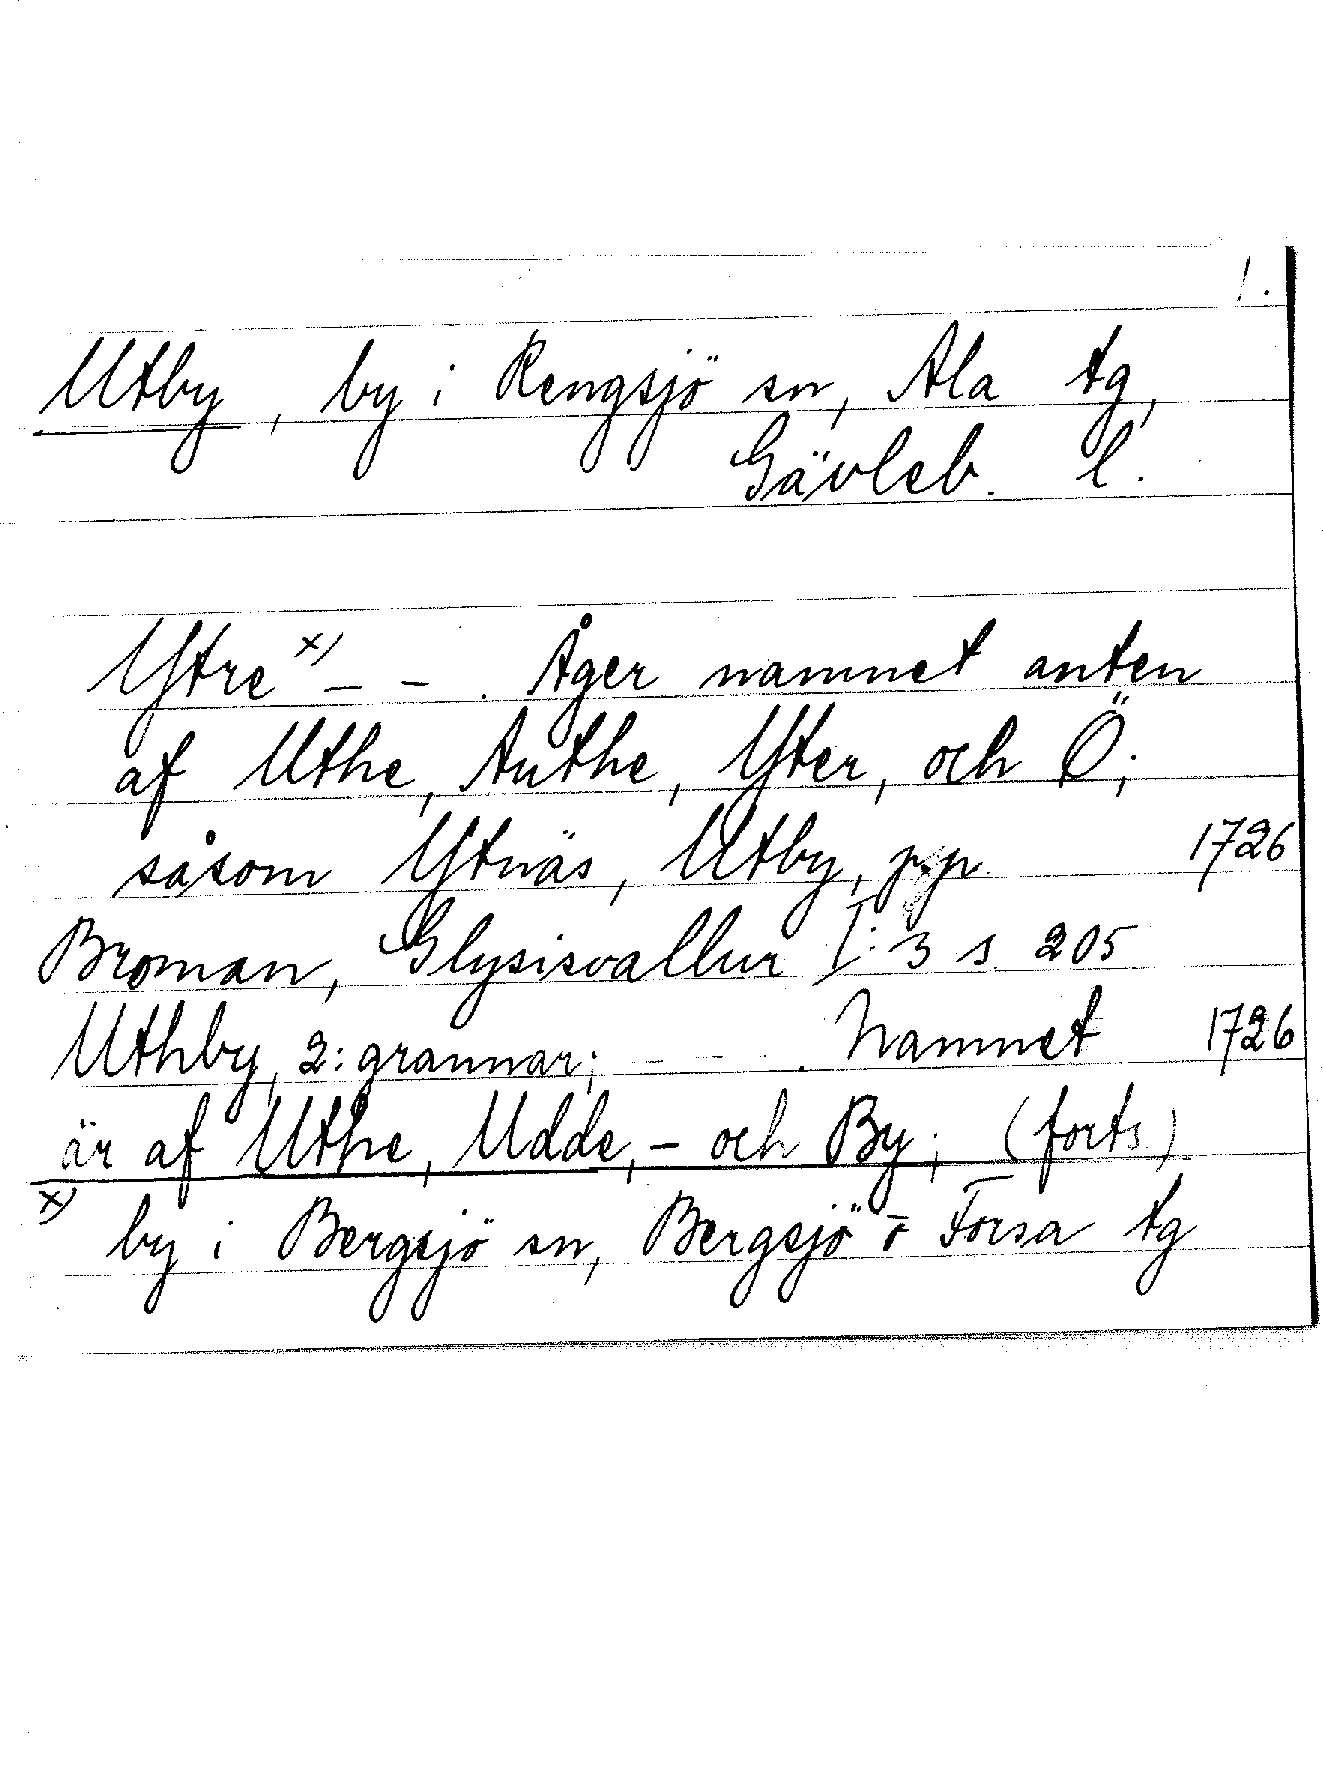 1.
Utby, by i Rengsjö sn, Ala tg,
Gävleb. l.
Ytre x) – – . Åger namnet anten
af Uthe, Authe, Yter, och Ö;
såsom Ytnäs, Utby, pp 1726
Broman, Glysisvallur I: 3 s. 205
Uthby, 2: grannar; – – – . Namnet 1726
är af Uthe, Udde, – och By; (forts.)
x) by i Bergsjö sn, Bergsjö o Forsa tg